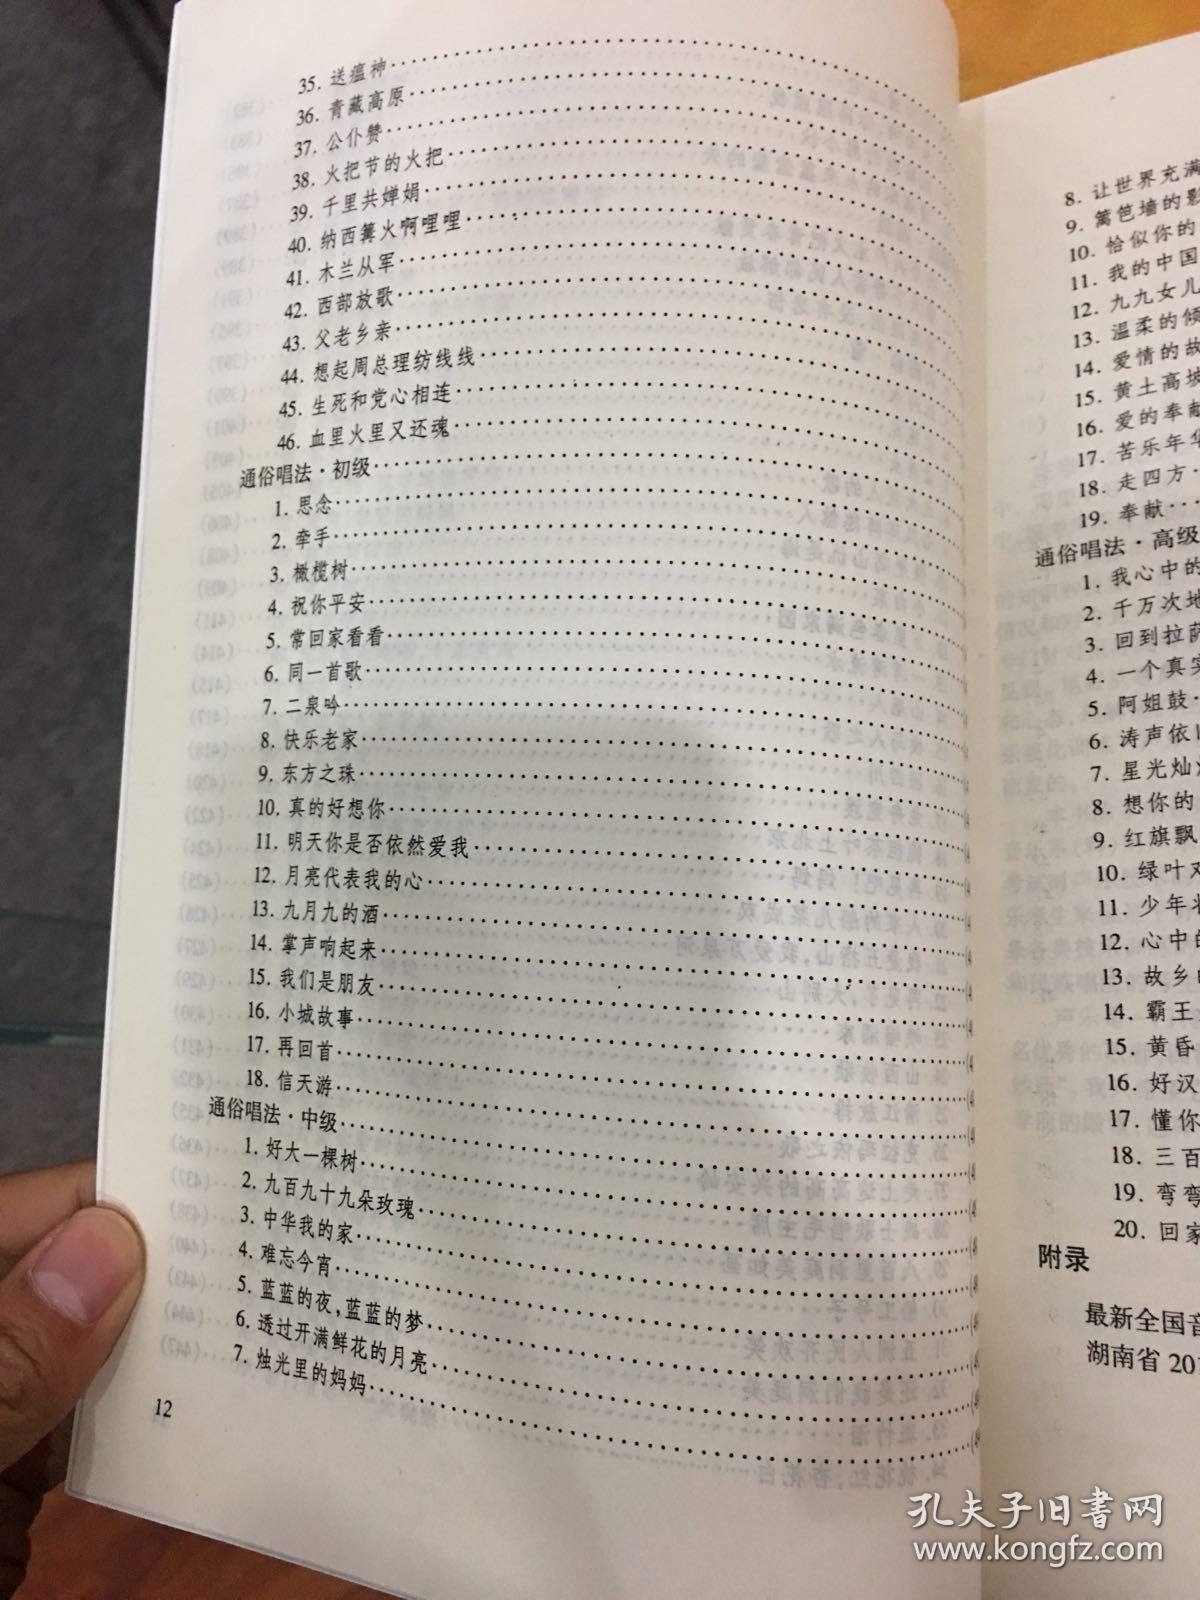 35. 送瘟神
36. 青藏高原
37. 公仆赞
38. 火把节的火把
39. 千里共婵娟
40. 纳西篝火啊哩哩
41. 木兰从军
42. 西部放歌
43. 父老乡亲
44. 想起周总理纺线线
45. 生死和党心相连
46. 血里火里又还魂
通俗唱法·初级
1. 思念
2. 牵手
3. 橄榄树
4. 祝你平安
5. 常回家看看
6. 同一首歌
7. 二泉吟
8. 快乐老家
9. 东方之珠
10. 真的好想你
11. 明天你是否依然爱我
12. 月亮代表我的心
13. 九月九的酒
14. 掌声响起来
15. 我们是朋友
16. 小城故事
17. 再回首
18. 信天游
通俗唱法·中级
1. 好大一棵树
2. 九百九十九朵玫瑰
3. 中华我的家
4. 难忘今宵
5. 蓝蓝的夜,蓝蓝的梦
6. 透过开满鲜花的月亮
7. 烛光里的妈妈
12
8. 让世界充满
9. 篱笆墙的影
10. 恰似你的
11. 我的中国
12. 九九女儿
13. 温柔的倾
14. 爱情的故
15. 黄土高坡
16. 爱的奉献
17. 苦乐年华
18. 走四方
19. 奉献
通俗唱法·高级
1. 我心中的
2. 千万次地
3. 回到拉萨
4. 一个真实
5. 阿姐鼓
6. 涛声依旧
7. 星光灿
8. 想你的
9. 红旗飘
10. 绿叶对
11. 少年壮
12. 心中的
13. 故乡的
14. 霸王
15. 黄昏
16. 好汉
17. 懂你
18. 三百
19. 弯弯
20. 回家
附录
最新全国音
湖南省 201
孔夫子旧书网
www.kongfz.com